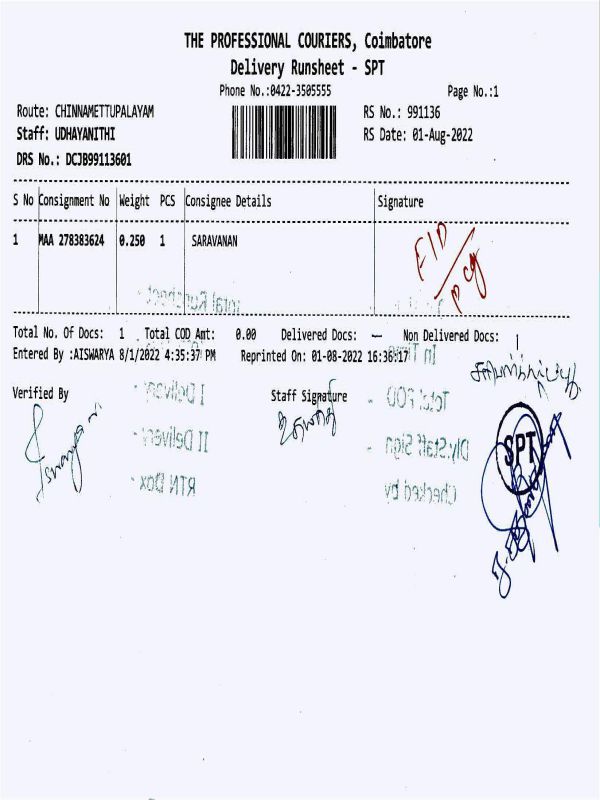 THE PROFESSIONAL COURIERS, Coimbatore
Delivery Runsheet - SPT
Phone No.:0422-3505555 Page No.:1
Route: CHINNAMETTUPALAYAM RS No.: 991136
Staff: UDHAYANITHI RS Date: 01-Aug-2022
DRS No.: DCJB99113601
S No Consignment No Weight PCS Consignee Details Signature
1 MAA 278383624 0.250 1 SARAVANAN
Total Runsheet -
Total No. Of Docs: 1 Total COD Amt: 0.00 Delivered Docs: — Non Delivered Docs: 1
Entered By :AISWARYA 8/1/2022 4:35:37 PM Reprinted On: 01-08-2022 16:36:17
In Time
Verified By Staff Signature
I Delivery - Total POD -
உதயநிதி
II Delivery - Dly.Staff Sign -
SPT
RTN Dox - Checked by